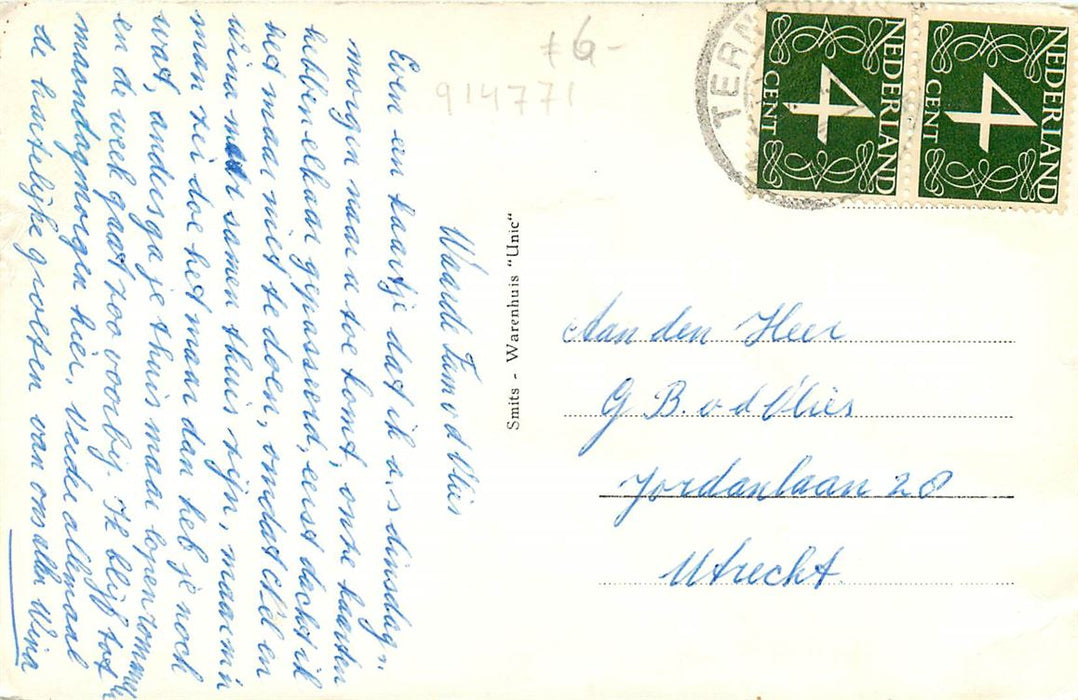 Waarde Fam v d Vlies
Even een kaartje dat ik a.s dinsdag n.
morgen naar u toe komt, onze kaarten
hebben elkaar gepasseerd, eerst dacht ik
het maar niet te doen, omdat en
Wina samen thuis zijn, maar m'n
man zei doe het maar dan heb je noch
wat, anders ga je thuis maar lopen
en de week gaat zoo voorby. Ik blijf tot
maandagmorgen hier, Verder allemaal
de hartelijke groeten van ons allen Wina
Smits - Warenhuis "Unic"
Aan den Heer
G B. v d Vlies
Jordanlaan 28
Utrecht.
NEDERLAND
4
CENT
NEDERLAND
4
CENT
TERN
6-
914771